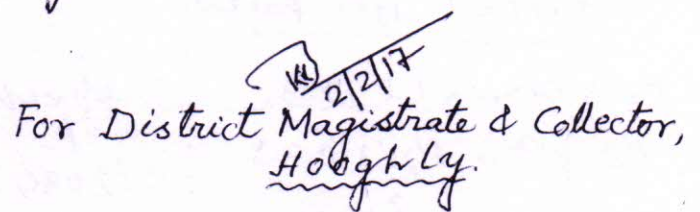 2/2/17
For District Magistrate & Collector,
Hooghly.